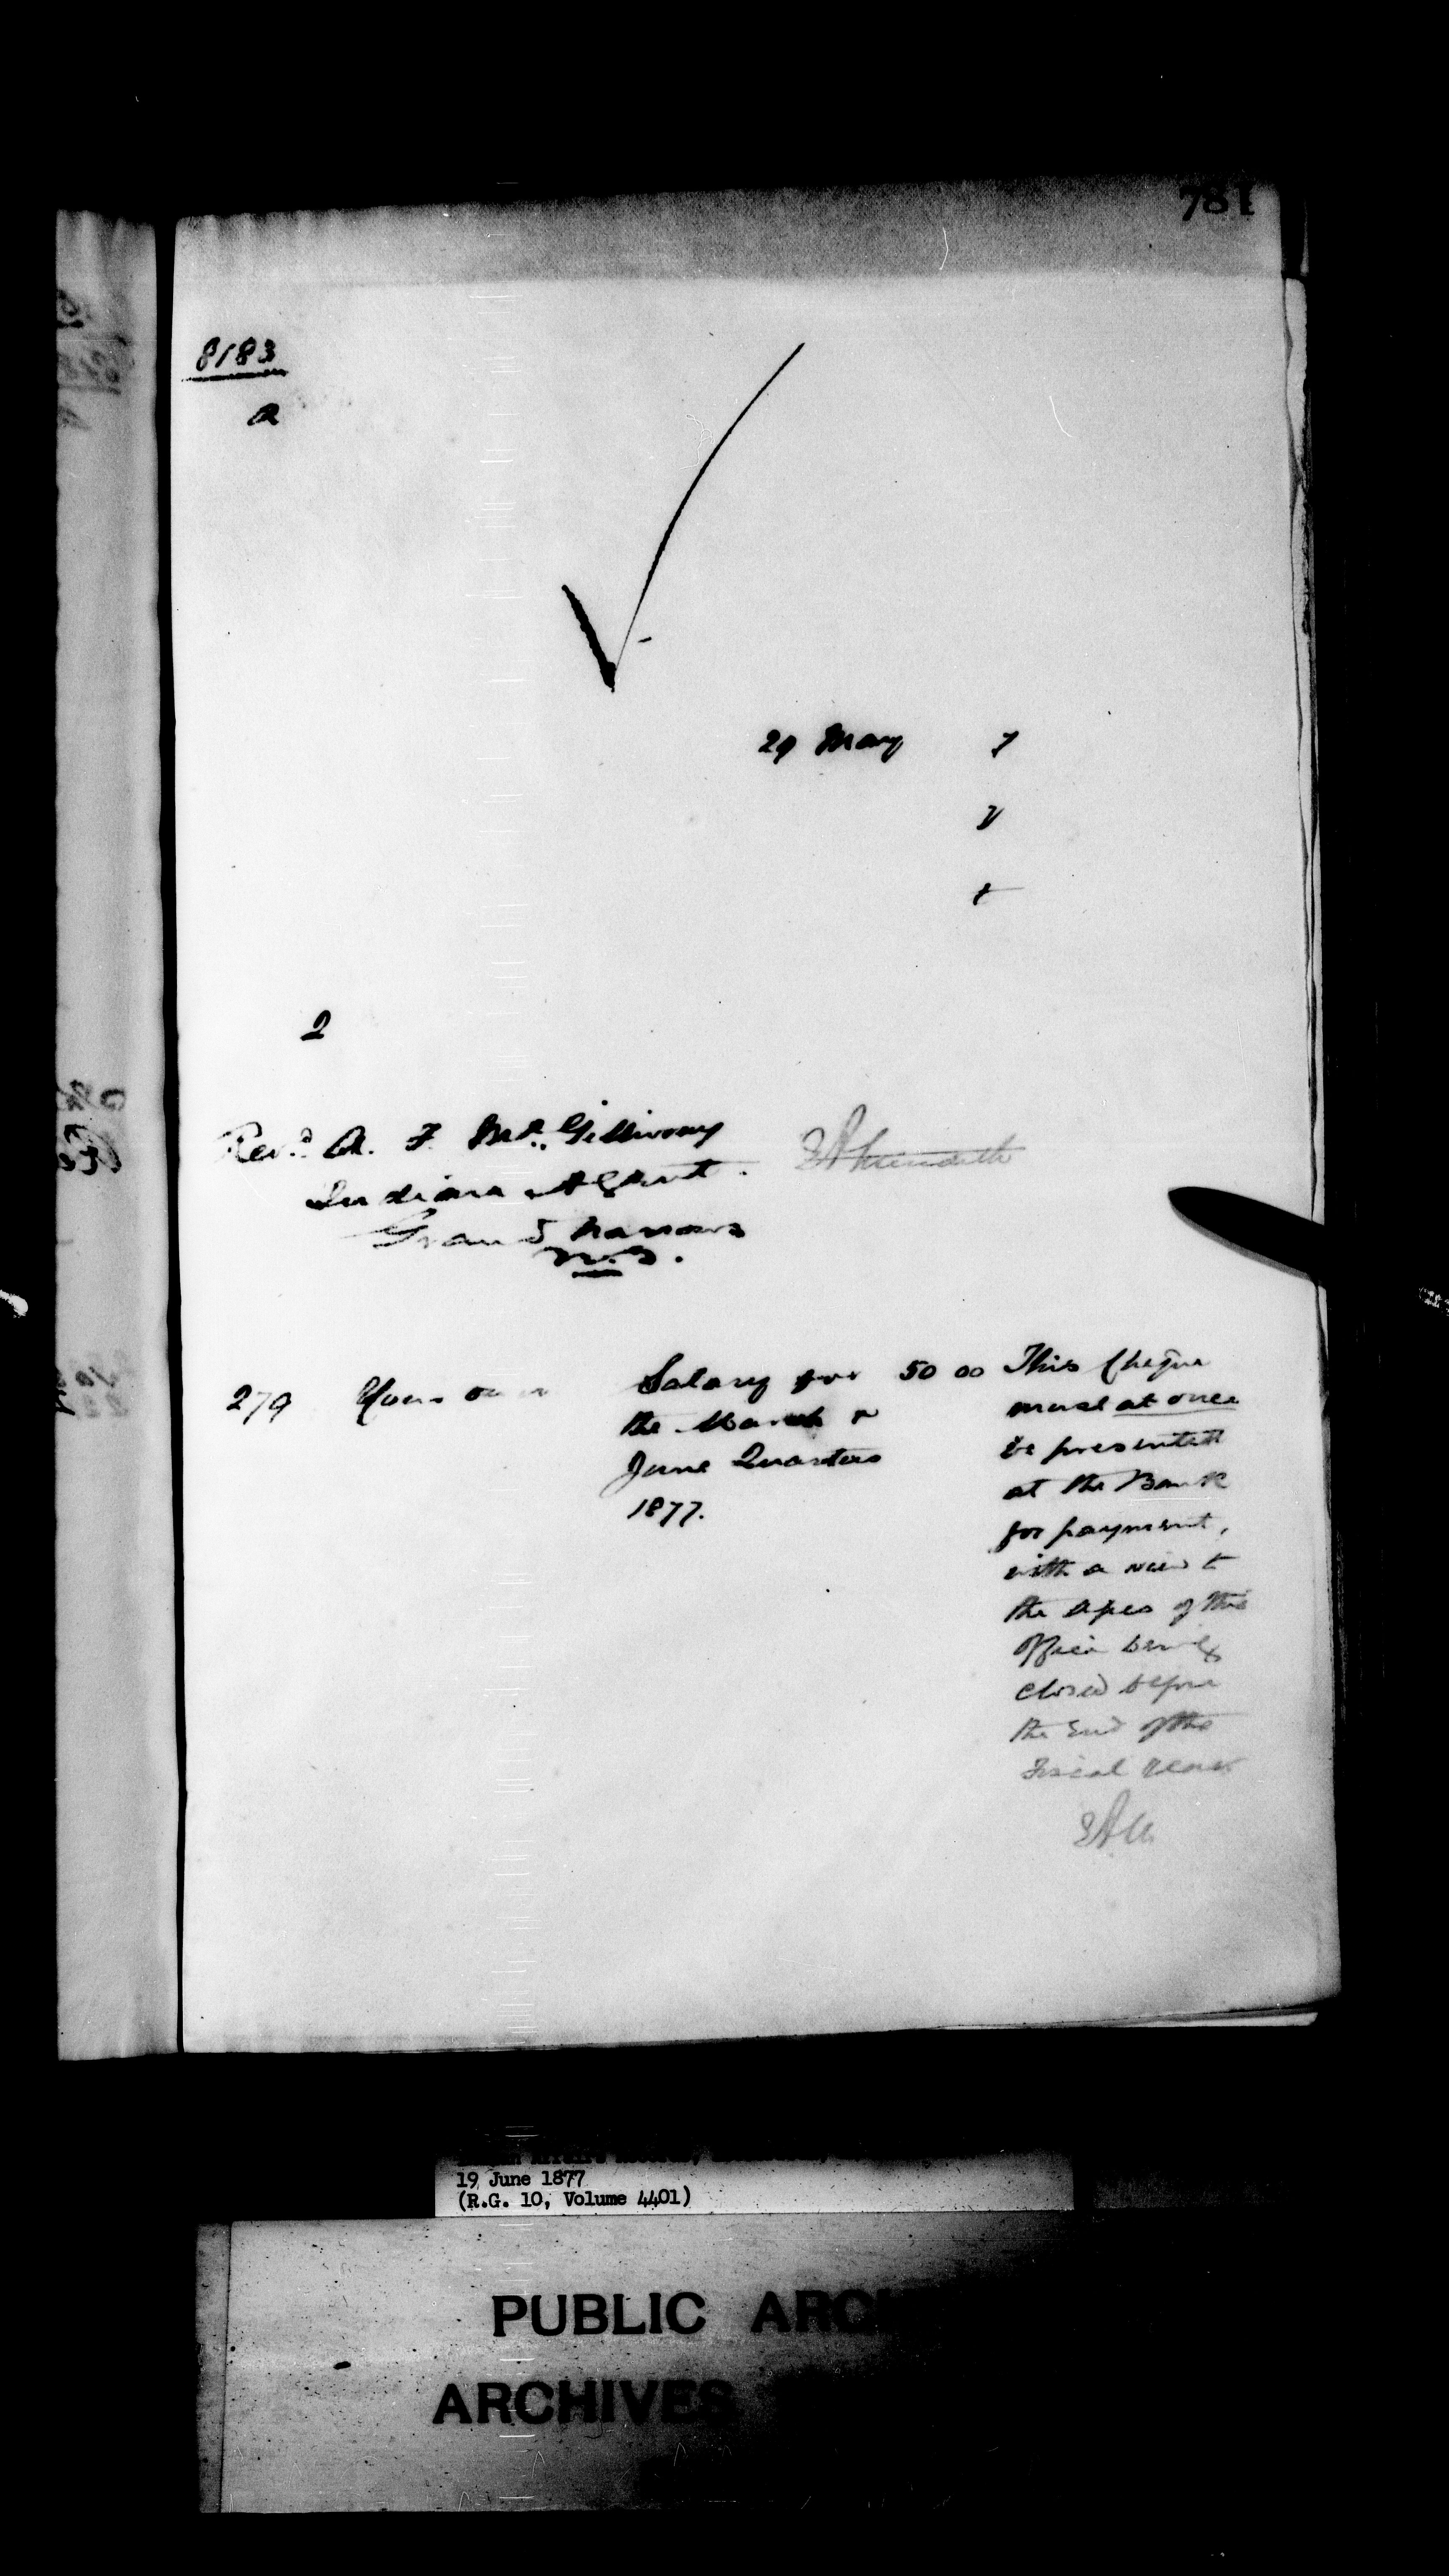 781
8183
a
29 May 7
y
t
2
Revd. A. F. McGillivray
Indian Agent.
Grand Narrows
N.S.
EAMeredith
279 Your own
Salary for 50 00
the March &
June Quarters
1877.
This Cheque
must at once
be presented
at the Bank
for payment,
with a view to
the of this
Office being
closed before
the End of the
Fiscal Year
EAM
19 June 1877
(R.G. 10, Volume 4401)
PUBLIC ARCH
ARCHIVES